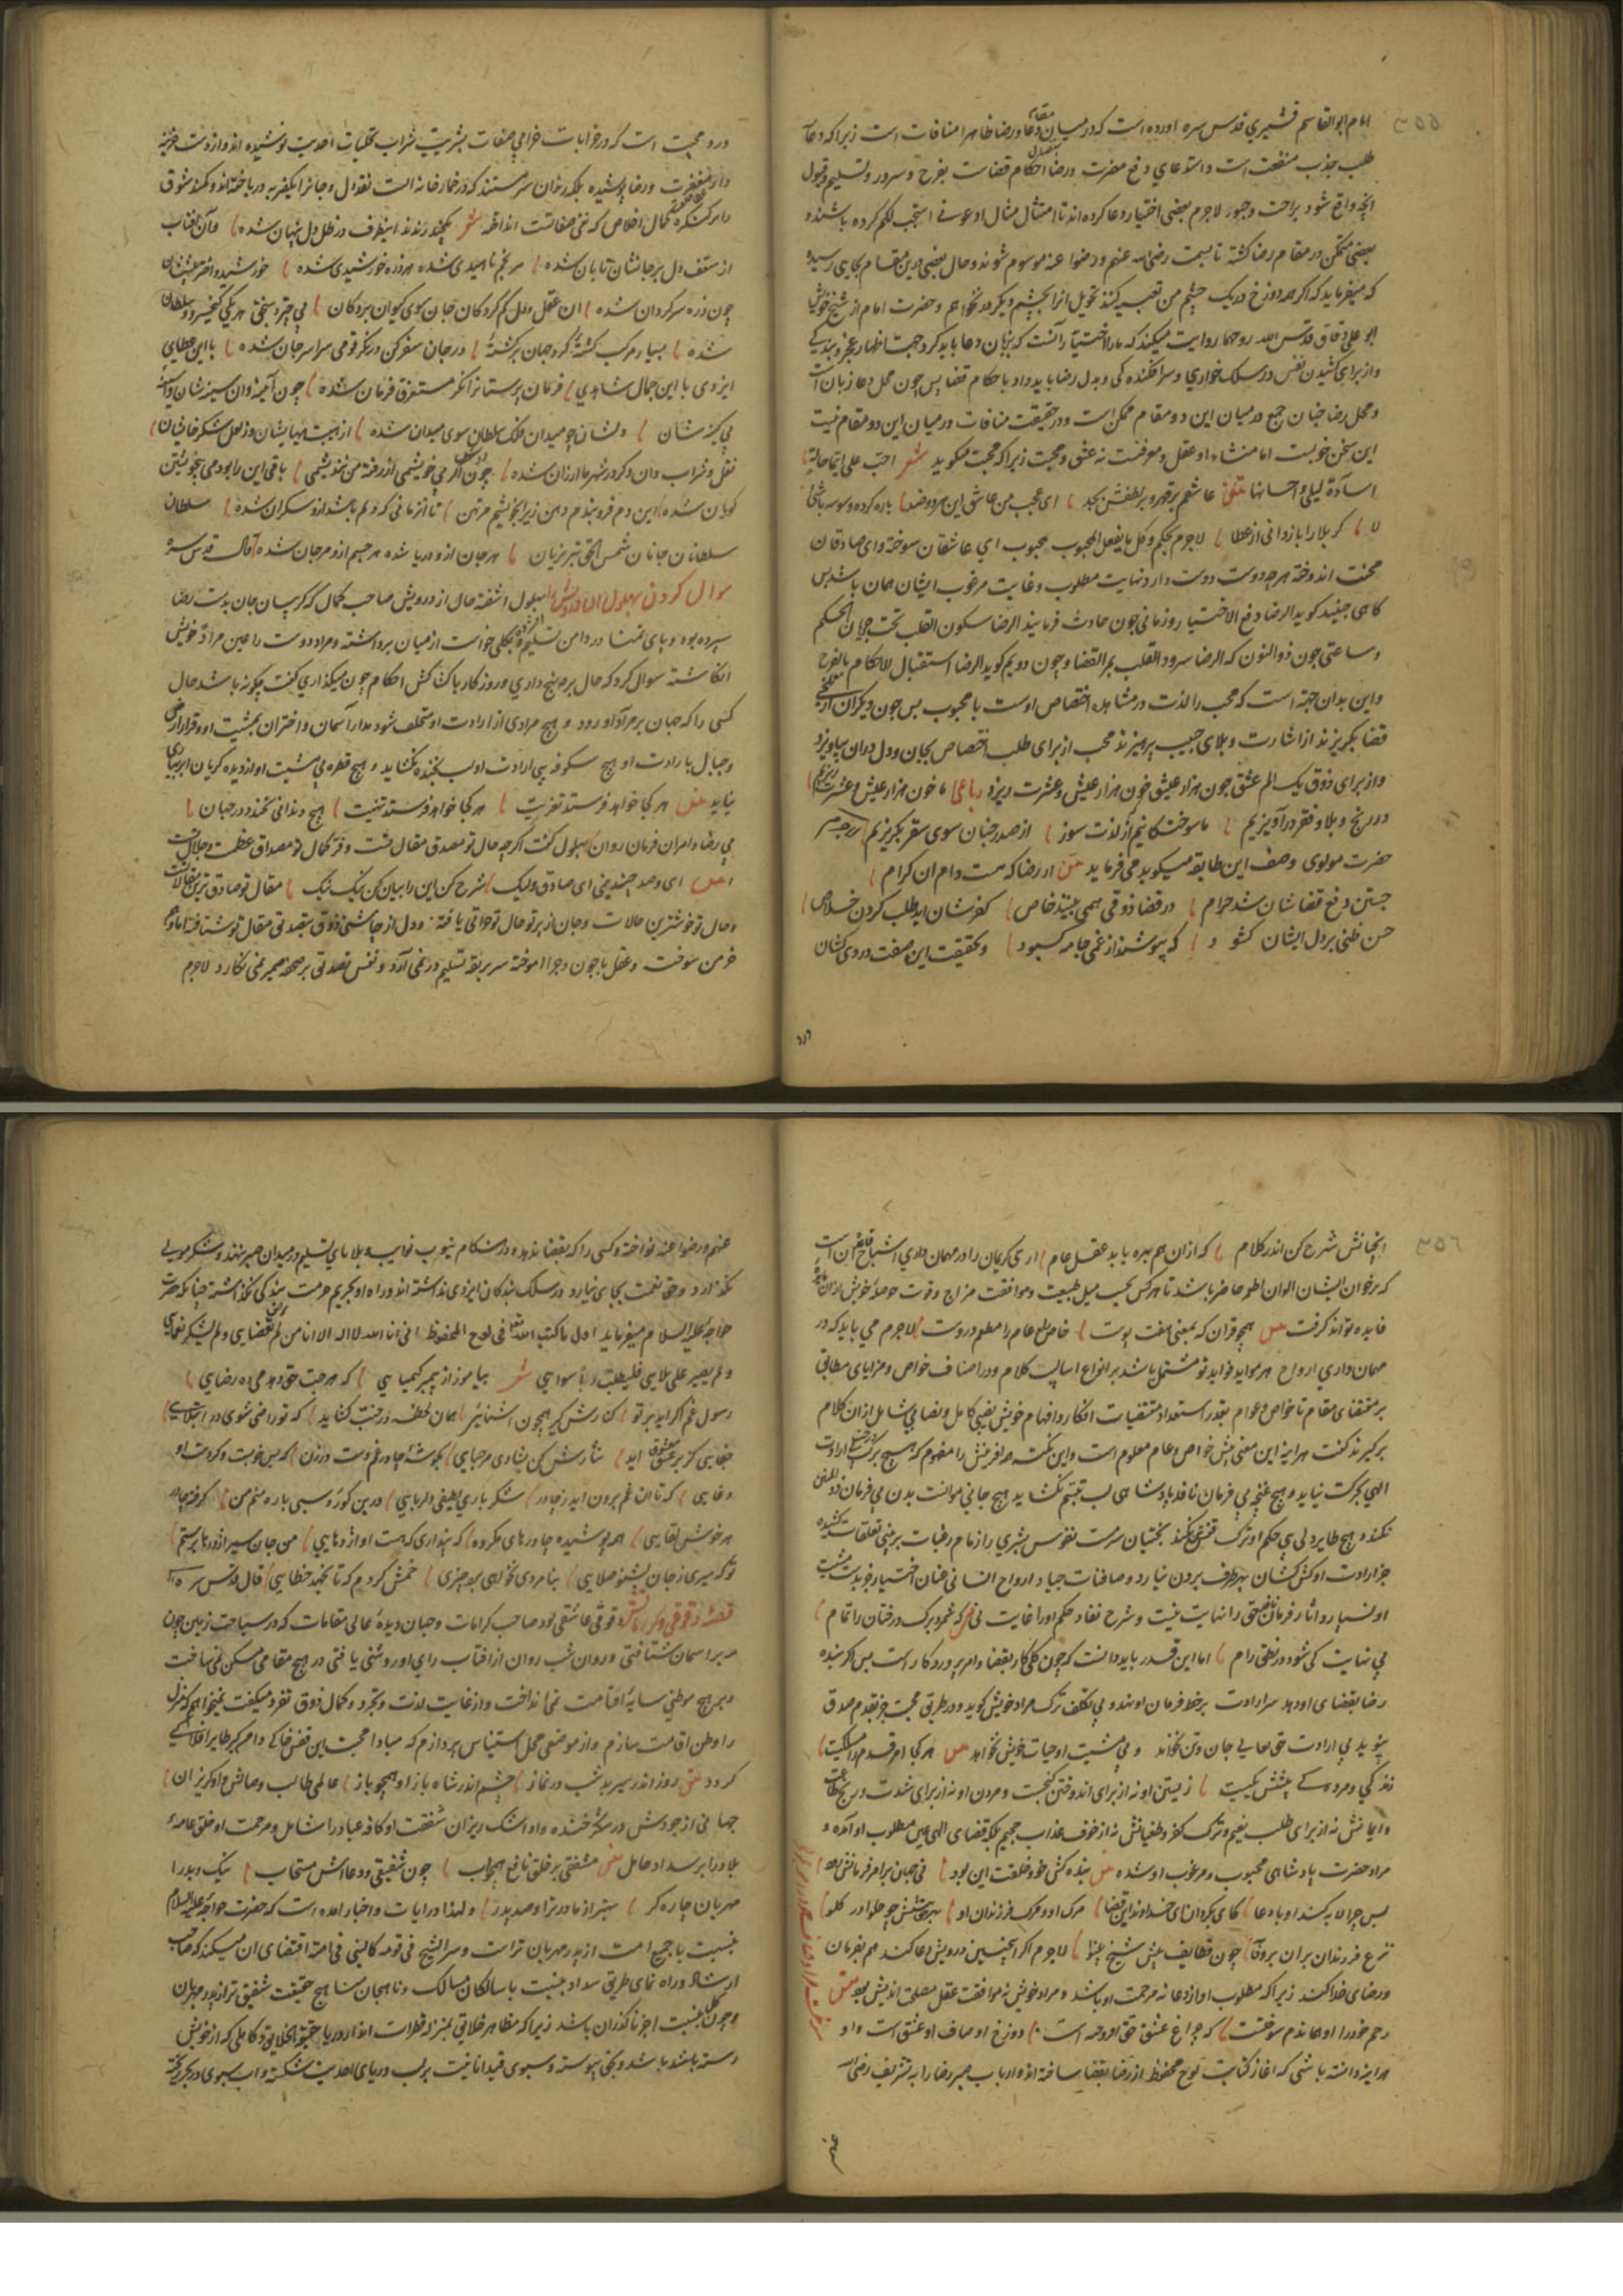 ۳۵۵
امام ابوالقاسم قشیری قدس سره اورده است که در میان مقام دعا و رضا ظاهرا منافات است زیرا که دعا
طلب جذب منفعت است و استدعای دفع مضرت و رضا احکام قضاست بفرح و سرور و تسلیم و قبول
انچه واقع شود براحت و جبور لاجرم بعضی اختیار دعا کرده اند تا امتثال مثال ادعونی استجب لکم کرده باشند و
بعضی متمکن در مقام رضا کشته تا بسمت رضی الله عنهم و رضوا عنه موسوم شوند و حال بعضی درین مقام بجایی رسیده
که میفرماید که اگر همه دوزخ در یک چشم من تعبیه کنند تحویل انرا بچشم دیگر نخواهم و حضرت امام از شیخ خویش
ابو علی دقاق قدس الله روحهما روایت میکند که ما را اختیار آنست که بزبان دعا باید کرد جهت اظهار عجز و بندگی
و از برای کشیدن نفس در سلک خواری و سرافکندگی و بدل رضا باید داد باحکام قضا پس چون محل دعا زبان است
و محل رضا جنان جمع در میان این دو مقام ممکن است و در حقیقت منافات در میان این دو مقام نیست
این سخن خوبست اما منشاء او عقل و معرفتست نه عشق و محبت زیرا که محبت میگوید شعر احب علی ایما حالة
اساءة لیلی و احسانها مثنوی عاشقم بر قهر و بر لطفش بجد ای عجب من عاشق این هر دو ضد باره کرده وسوسه باشی
لا کر بلا را بازدانی از عطا لاجرم بحکم و کل ما یفعل المحبوب محبوب ای عاشقان سوخته وای صادقان
محنت اندوخته هرچه دوست دوست دارد نهایت مطلوب و غایت مرغوب ایشان همان باشد پس
کاهی جنید کوید الرضا دفع الاختیار و زمانی چون حارث فرماید الرضا سکون القلب تحت جریان الحکم
و ساعتی چون ذوالنون که الرضا سرور القلب بمر القضا و چون رویم کوید الرضا استقبال الاحکام بالفرح
و این بدان جهة است که محب را لذت در مشاهده اختصاص اوست با محبوب پس چون دیگران از تلخی
قضا بگریزند از اشارت و بلای حبیب پرهیزند محب از برای طلب اختصاص بجان و دل دران بیاویزد
و از برای ذوق یک الم عشق چون هزار عیش خون هزار عیش و عشرت ریزد رباعی ما خون هزار عیش و عشرت ریزیم
در رنج و بلا و فقر درآویزیم ما سوختکانیم از لذت سوز از صدر جنان سوی سقر بگریزیم
حضرت مولوی وصف این طایفه میکوید و می فرماید مثنوی از رضا که هست رام ان کرام
جستن دفع قضاشان شد حرام در قضا ذوقی همی بینند خاص کفرشان اید طلب کردن خلاص
حسن ظنی بر دل ایشان کشود که نپوشند از غمی جامه کبود و تحقیقت این صفت دردی کشان
درد محبت است که در خرابات خرابی صفات بشریت شراب تجلیات احدیت نوشیده اند و از دست خزینه
دار مغفرت و رضا پوشیده بلکه رندان سرمستند که در خمارخانه الست نقد دل و جانرا بیکفره درباخته اند و کمند شوق
را بر کنکره کمال اخلاص که نفی صفاتست انداخته شعر یکچند رندند اینطرف در ظل دل پنهان شده وان افتاب
از سقف دل بر جانشان تابان شده هر نجم ناهیدی شده هر ذره خورشیدی شده خورشید و اختر پیششان
چون ذره سرکردان شده ان عقل و دل کم کردکان جان سوی کیوان بردکان بی چتر و سنجق هر یکی کیخسرو و سلطان
شده بسیار مرکب کشتهٔ کرد جهان برکشتهٔ در جان سفر کن درنکر قومی سراسر جان شده با این عطای
ایزدی با این جمال شاهدی فرمان پرستانرا نکر مستغرق فرمان شده چون آینه دان سینه شان و
بی کینه شان دلشان چو میدان فلک سلطان سوی میدان شده از هیبت هیهایشان وز لعل شکرخایشان
نقل و شراب وان دکر در شهر ما ارزان شده چون دوش اکر بی خویشمی از رفته من نندیشمی باقی این را بودمی بی خویشتن
کویان شده این دم فروبندم دهن زیرا بخویشم مرتهن تا انزمانی که دلم باشد ازو سکران شده سلطان
سلطانان جانان شمس الحق تبریزیان هر جان ازو دریا شده هر جسم ازو مرجان شده قال قدس سره
سوال کردن بهلول ان درویش را بهلول اشفته حال از درویش صاحب کمال که کریبان جان بدست رضا
سپرده بود و پای تمنا در دامن تسلیم و بکلی خواست از میان برداشته و مراد دوست را عین مراد خویش
انکاشته سوال کرد که حال برچه نهج داری و روزکار با کشاکش احکام چون میکذاری کفت چگونه باشد حال
کسی را که جهان بر مراد او رود و هیچ مرادی از ارادت او متخلف نشود مدار آسمان و اختران بمشیت او و قرار ارض
و جبال بارادت او هیچ شکوفه بی ارادت او لب بخنده نکشاید و هیچ قطره بی مشیت او از دیده کریان ابر
نیاید مثنوی هر کجا خواهد فرستد تعزیت هر کجا خواهد فرستد تهنیت هیچ دندانی نخندد در جهان
بی رضا و امر ان فرمان روان بهلول کفت اکرچه حال تو مصدق مقال تست و فر کمال تو مصداق عظمت و جلال تست
مثنوی ای و صد چندینی ای صادق ولیک شرح کن این را بیان کن نیک نیک مقال تو صادق ترین مقالات
و حال تو خوشترین حالات و جان از پرتو حال تو حیاتی یافته و دل از چاشنی ذوق بتصدیق مقال تو شتافته اما
خرمن سوخت و عقل با چون و چرا اموخته سر بربقه تسلیم در نمی آرد و نفس تصدیق بر صفحه ضمیر نمی نکارد لاجرم
۳۵۶
انچنانش شرح کن اندر کلام که ازان هم بهره یابد عقل عام اری کریمان را در مهمان داری اشباح قاعده آن است
که بر خوان ایشان الوان اطعمه حاضر باشد تا هر کس بحسب میل طبیعت و موافقت مزاج و قوت حوصله خویش ازان مایده
فایده تواند کرفت مثنوی همچو قران که بمعنی هفت توست خاص را و عام را مطعم دروست لاجرم می باید که در
مهمان داری ارواح هر مواید فواید تو مشتمل باشد بر انواع اسالیب کلام و در اصناف خواص و مزایای مطابق
بر مقتضای مقام تا خواص و عوام بقدر استعداد مقتضیات افکار و افهام خویش نصیبی کامل و نصابی شامل ازان کلام
برکیرند کفت هراینه این معنی پیش خواص و عام معلوم است و این نکته همه افرینش را مفهوم که هیچ برک درخت بی ارادت
الهی بحرکت نیاید و هیچ غنچه بی فرمان نافذ پادشاهی لب بتبسم نکشاید هیچ جانی موانست بدن بی فرمان ذوالمنن
نکند و هیچ طایر دلی بی حکم او ترک قفس نکند بختیان سرمست نفوس بشری را زمام رغبات بر بینی تعلقات کشیده
جز ارادت او کش کشان بهر طرف بردن نیارد و صافنات جیاد ارواح انسانی عنان اختیار خود بدست مشیت
او نسپارد و اثار فرمان نافذ حق را نهایت نیست و شرح نفاد حکم او را غایت نی مثنوی که شمرد برک درختان را تمام
بی نهایت کی شود در نطق رام اما این قدر باید دانست که چون کلی کار بقضا و امر پروردکار است پس اکر بنده
رضا بقضای او دهد سر ارادت بر خط فرمان او نهد و بی تکلف ترک مراد خویش کوید و در طریق محبت جز بقدم صدق
نپوید بی ارادت حق تعالی جان و تن نخواند و بی مشیت او حیات خویش نخواهد مثنوی هر کجا امر قدم را مسلکیست
زندکی و مردکی پیشش یکیست زیستن او نه از برای اندوختن کنجست و مردن او نه از برای شدت و رنج
و ایمانش نه از برای طلب نعیم و ترک کفر و طغیانش نه از خوف عذاب جحیم بلکه قضای الهی عین مطلوب او آمده و
مراد حضرت پادشاهی محبوب و مرغوب او شده مثنوی بنده کش خو و خلقت این بود نی جهان بر امر و فرمانش رود
پس چرا لابه کند او یا دعا که ای بکردان ای خداوند این قضا مرک او و مرک فرزندان او بهر حق پیشش چو حلوا در کلو
نزع فرزندان بران بر وفا چون قطایف پیش شیخ بینوا لاجرم اکر اینچنین درویش دعا کند هم بفرمان
و رضای خدا کند زیرا که مطلوب او از دعا نه مرحمت او باشد و مراد خویش نه موافقت عقل مصلحت اندیش بود مثنوی
رحم خود را او هماندم سوختست که چراغ عشق حق افروخته است دوزخ اوصاف او عشق است و او
هراینه دانسته باشی که اغاز کتابت لوح محفوظ از رضا بقضا ساخته اند و ارباب صبر رضا را به تشریف رضی الله
عنهم و رضوا عنه نواخته و کسی را که بقضا ندهد و در هنکام نیوب نوایب و بلا پای تسلیم در میدان صبر ننهد و شکر موهبی
نکذارد و حق نعمت بجای نیارد در سلک بندکان ایزدی نداشته اند و راه او بحریم حرمت بندکی نکذاشته چنانکه حضرت
خواجه علیه السلام میفرماید اول ما کتب الله تعالی فی لوح المحفوظ انی انا الله لا اله الا انا من لم یرض بقضایی و لم یشکر نعمای
و لم یصبر علی بلایی فلیطلب ربا سوایی شعر بیاموز از پیمبر کیمیایی که هرچت حق دهد می ده رضایی
رسول غم اکر اید بر تو کنارش کیر همچون اشنایی همان لحظه در جنت کشاید که تو راضی شوی در ابتلایی
جفایی کز بر معشوق اید نثارش کن بشادی مرحبایی بکوشهٔ چادر غم دست درزن که بس خوبست و کرده است او
دغایی که تا ان غم برون اید ز چادر شکر باری لطیفی دلربایی درین کو روسپی باره منم من کرفته چادر
هر خوش لقایی همه پوشیده چادرهای مکروه که پنداری که هست او اژدهایی من جان سیر اژدرها پرستم
تو کر سیری ز جان بشنو صلایی بنامردی نخواهی برد چیزی خمش کردم که تا نجهد خطایی قال قدس سره
قصهٔ دقوقی و کراماتش دقوقی عاشقی بود صاحب کرامات و جهان دیدهٔ عالی مقامات که در سیاحت زمین چون
مه بر اسمان شتافتی و روان شب روان از افتاب رای او روشنی یافتی در هیچ مقامی مسکن نمی ساخت
و بر هیچ موطنی سایه اقامت نمی انداخت و از غایت لذت و تجرد و کمال ذوق تفرد میکفت نمیخواهم که منزل
را وطن اقامت سازم و از موضعی محل استیناس پردازم که مبادا محبت این قفس خاکی دامن کیر طایر افلاکی
کردد مثنوی روز اندر سیر بد شب در نماز چشم اندر شاه باز او همچو باز عالمی طالب وصالش و او کریزان
جهانی از جودش در شکرخنده و او اشک ریزان شفقت او کافه عباد را شامل و مرحمت او خلق عامه
بلاد را برسداد حامل مثنوی مشفقی بر خلق نافع همچو اب چون شفیقی و دعااش مستجاب نیک و بد را
مهربان چاره کر بهتر از مادر تر او صد پدر و لهذا در ایات و اخبار امده است که حضرت خواجه علیه السلام
بنسبت با جمیع امت از پدر مهربان تراست و سر الشیخ فی قومه کالنبی فی امته اقتضای ان میکند که صاحب
ارشاد و راه نمای طریق سداد بنسبت با سالکان مسالک و ناهجان مناهج حقیقت شفیق تر از پدر مهربان
و چون کل بنسبت اجزا ناکذران باشد زیرا که مظاهر خلایق بمنزله قطرات اند از دریا حقیقة الحقایق و کاملی که از خویش
رسته باشد باشد و بحق پیوسته و سبوی قید انانیت بر لب دریای احدیت شکسته و اب سبوی در بحر ریخته